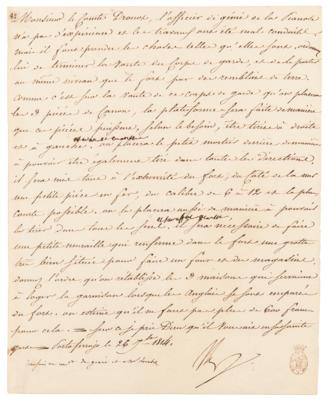 Monsieur le Comte Drouot, l'officier de génie de la Pianosa
n'a pas d'expérience et les travaux ont été mal conduits
mais il faut prendre les choses telles qu'elles sont
lui de terminer la voute du corps de garde, et de la porter
au même niveau que le fort par des remblais de terre.
Comme c'est sur la voute de ce corps de garde qu'on placera
les 3 pièces de Canon, la plateforme sera faite de manière
que ces pièces puissent, selon le besoin, être tirées à droite
et à gauche. on placera le petit mortier derrière de manière
à pouvoir être également tiré dans toutes les directions.
il sera mis tout à l'extrémité du fort, du côté de la mer
une petite pièce en fer, du calibre de 6 à 12 et la plus
courte possible, on la placera aussi de manière à pouvoir
la tirer dans tous les sens. il sera nécessaire de faire
une petite muraille qui renferme dans le fort une grotte
très bien située pour faire un four et des magasins.
donnez l'ordre qu'on rétablisse les 3 maisons qui servaient
à loger la garnison lorsque les Anglais se sont emparés
du fort. on estime qu'il ne faut pas plus de 600 francs
pour cela. Sur ce je prie Dieu qu'il vous ait en sa sainte
garde. Porto ferrajo le 26 7bre 1814.